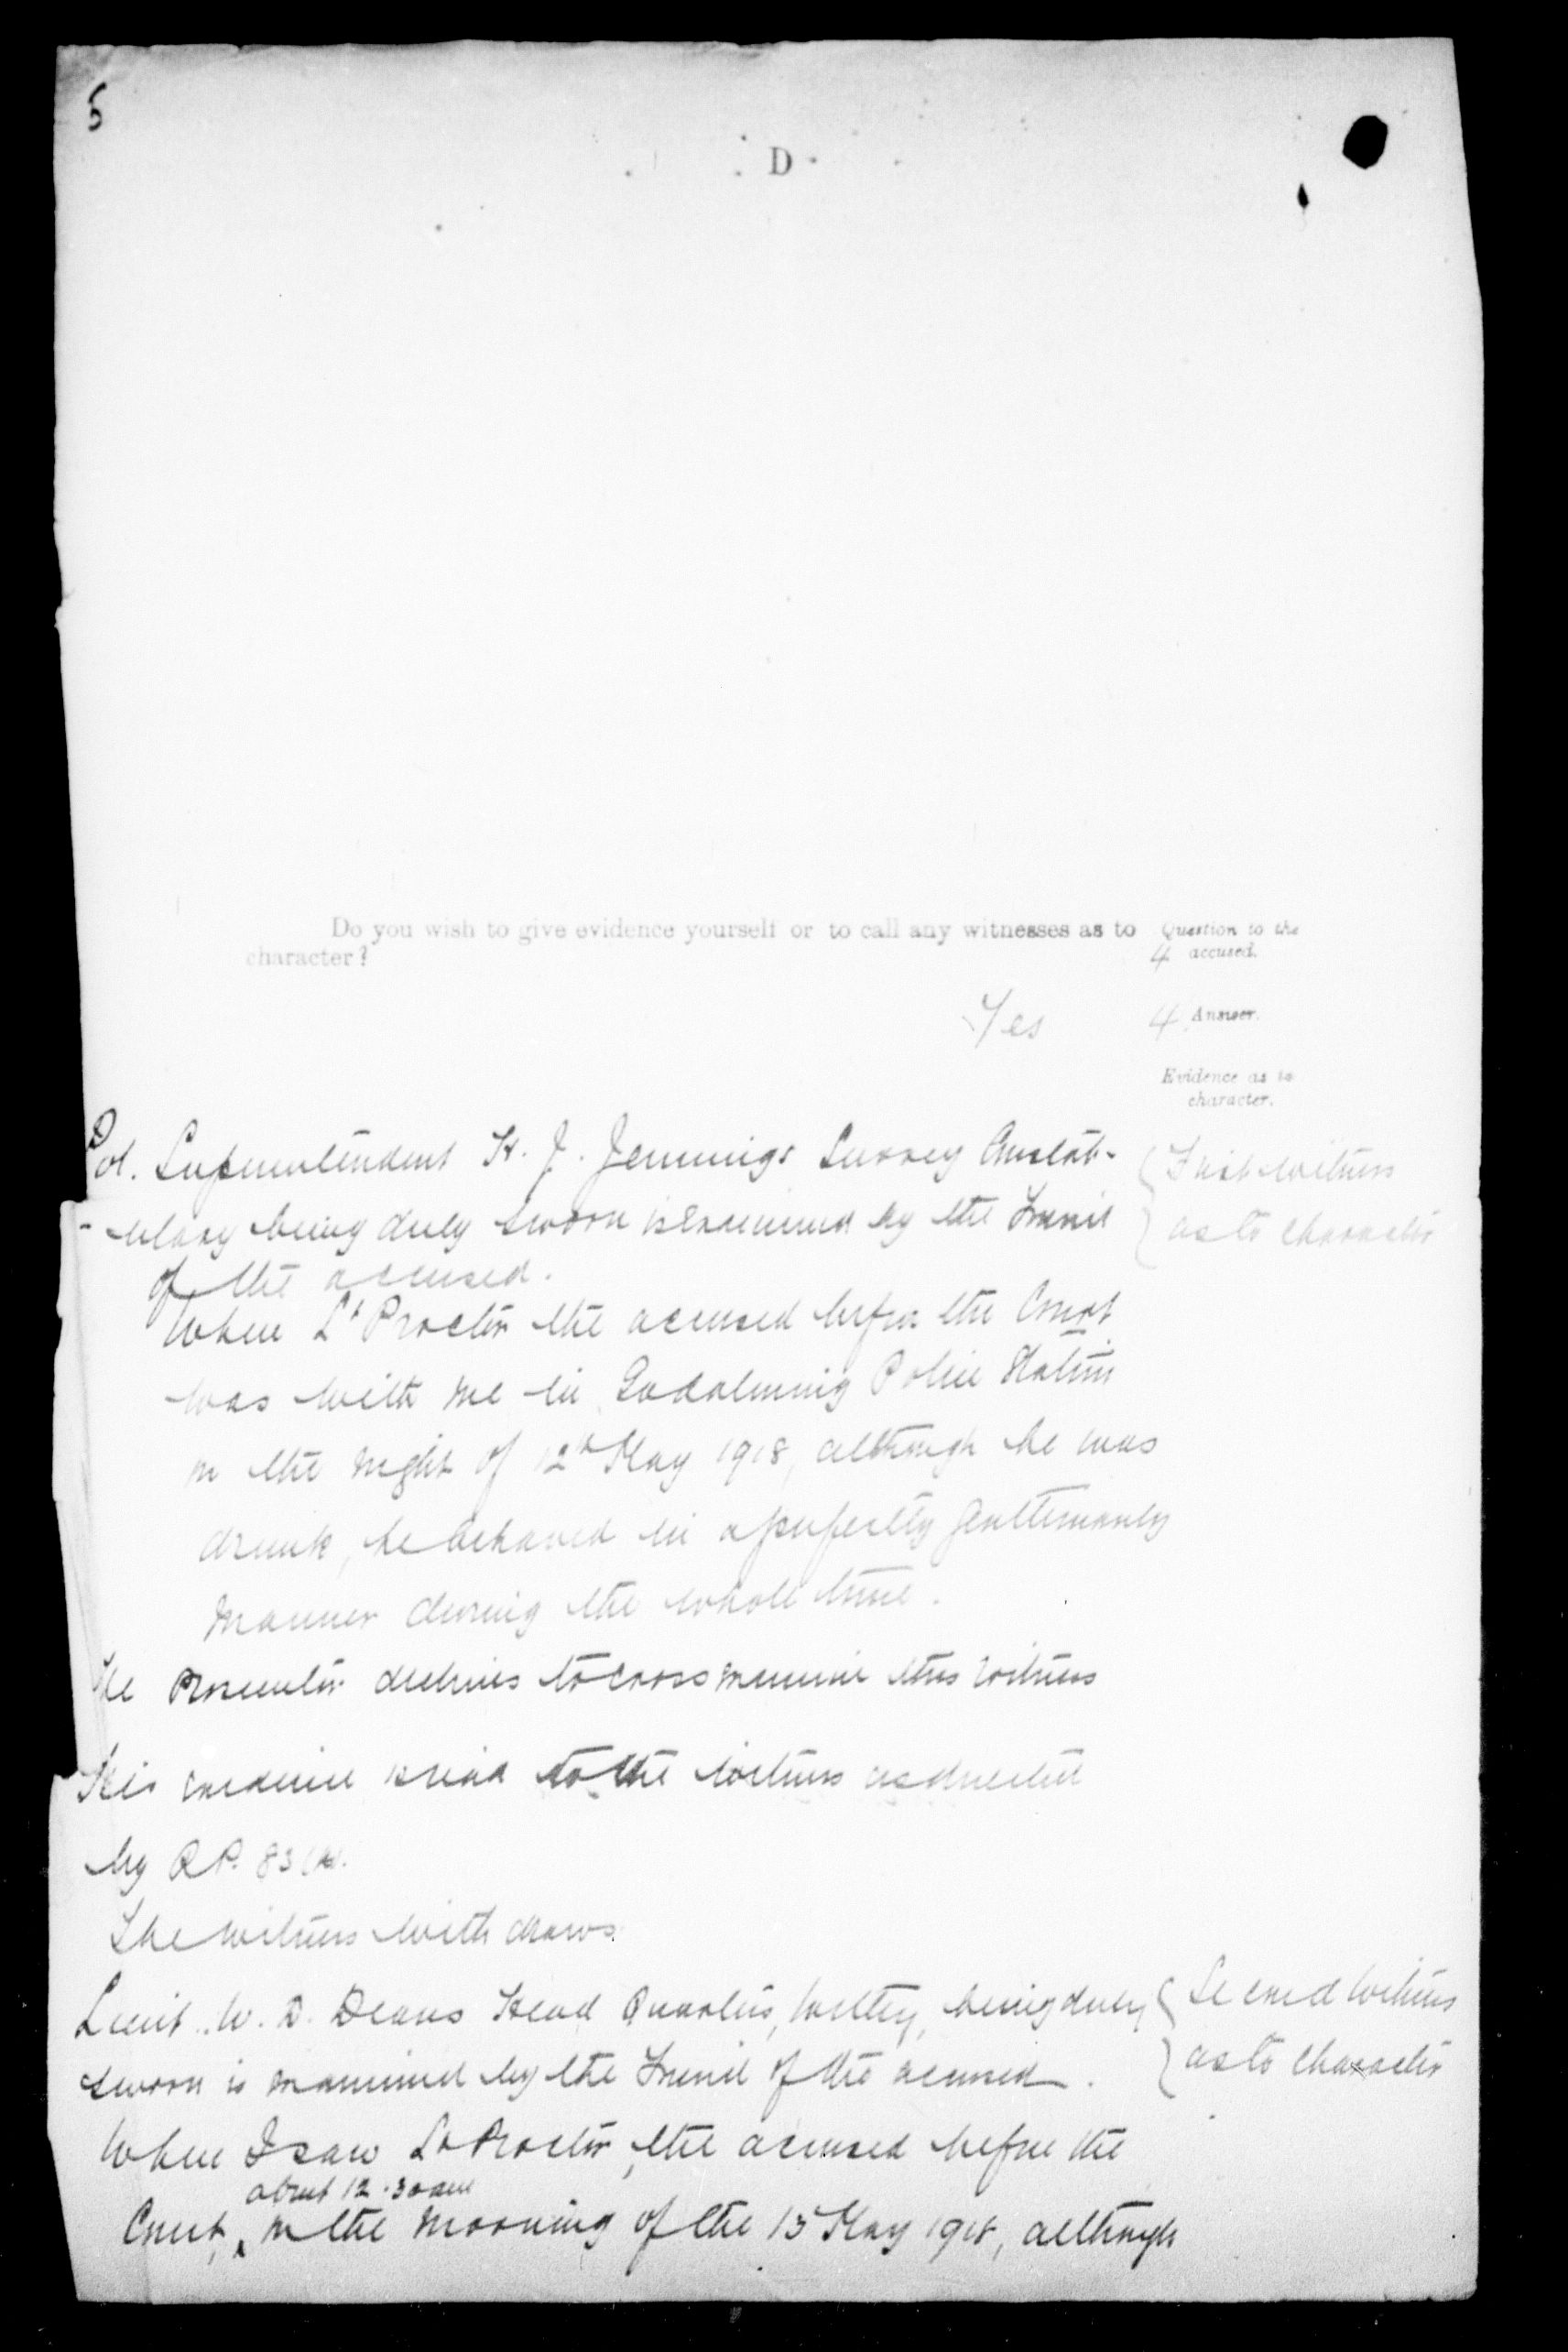 5
D
Do you wish to give evidence yourself or to call any witnesses as to
character?
Question to the
4 accused.
Yes
4 Answer.
Evidence as to
character.
Pol. Superintendent H. J. Jennings Surrey Constab-
-ulary being duly sworn is examined by the Friend
of the accused.
{First witness
as to character
When Lt Proctor the accused before the Court
was with me in Godalming Police Station
on the night of 12th May 1918, although he was
drunk, he behaved in a perfectly gentlemanly
manner during the whole time.
The Prosecutor declines to cross examine this witness
His evidence is read to the witness as directed
by R.P. 83
The witness withdraws.
Lieut. W. D. Deans Head Quarters, Witley, being duly
sworn is examined by the Friend of the accused.
{Second Witness
as to character
When I saw Lt Proctor, the accused before the
about 12.30 am
Court, on the morning of the 13 May 1918, although